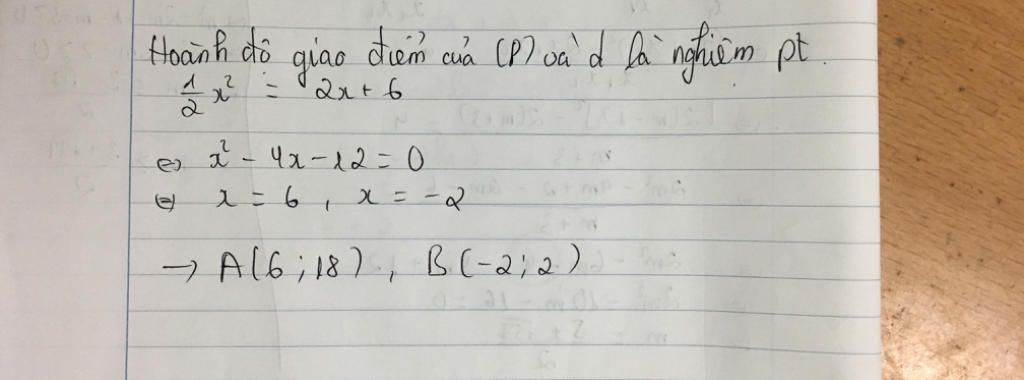 Hoành độ giao điểm của (P) và d là nghiệm pt.
1/2 x² = 2x + 6
⇔ x² - 4x - 12 = 0
⇔ x = 6 , x = -2
→ A(6 ; 18) , B(-2 ; 2)